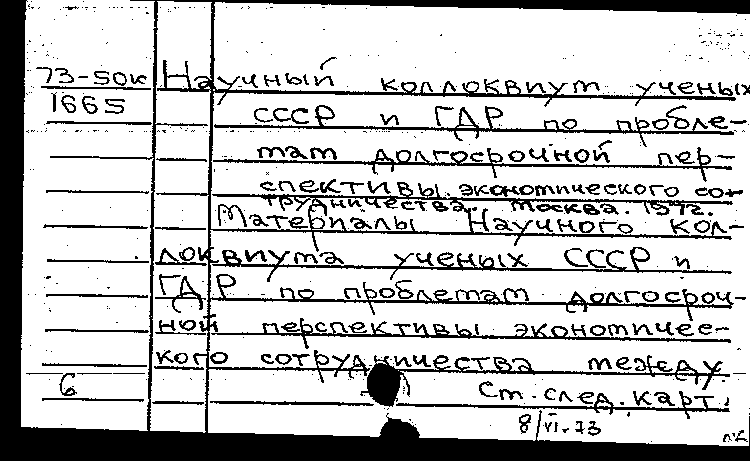 73-50к Научный коллоквиум ученых
1665 СССР и ГДР по пробле-
мам долгосрочной пер-
спективы экономического сот-
трудничества. Москва. 1972.
Материалы Научного кол-
локвиума ученых СССР и
ГДР по проблемам долгосроч-
ной перспективы экономичес-
кого сотрудничества между
6 См. след. карт.
8/VI-73